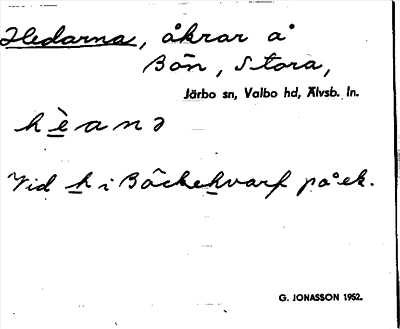 Hedarna, åkrar å
Bön, Stora,
Järbo sn, Valbo hd, Älvsb. ln.
hèanə
Vid h i Bäckehvarf på ek.
G. JONASSON 1952.